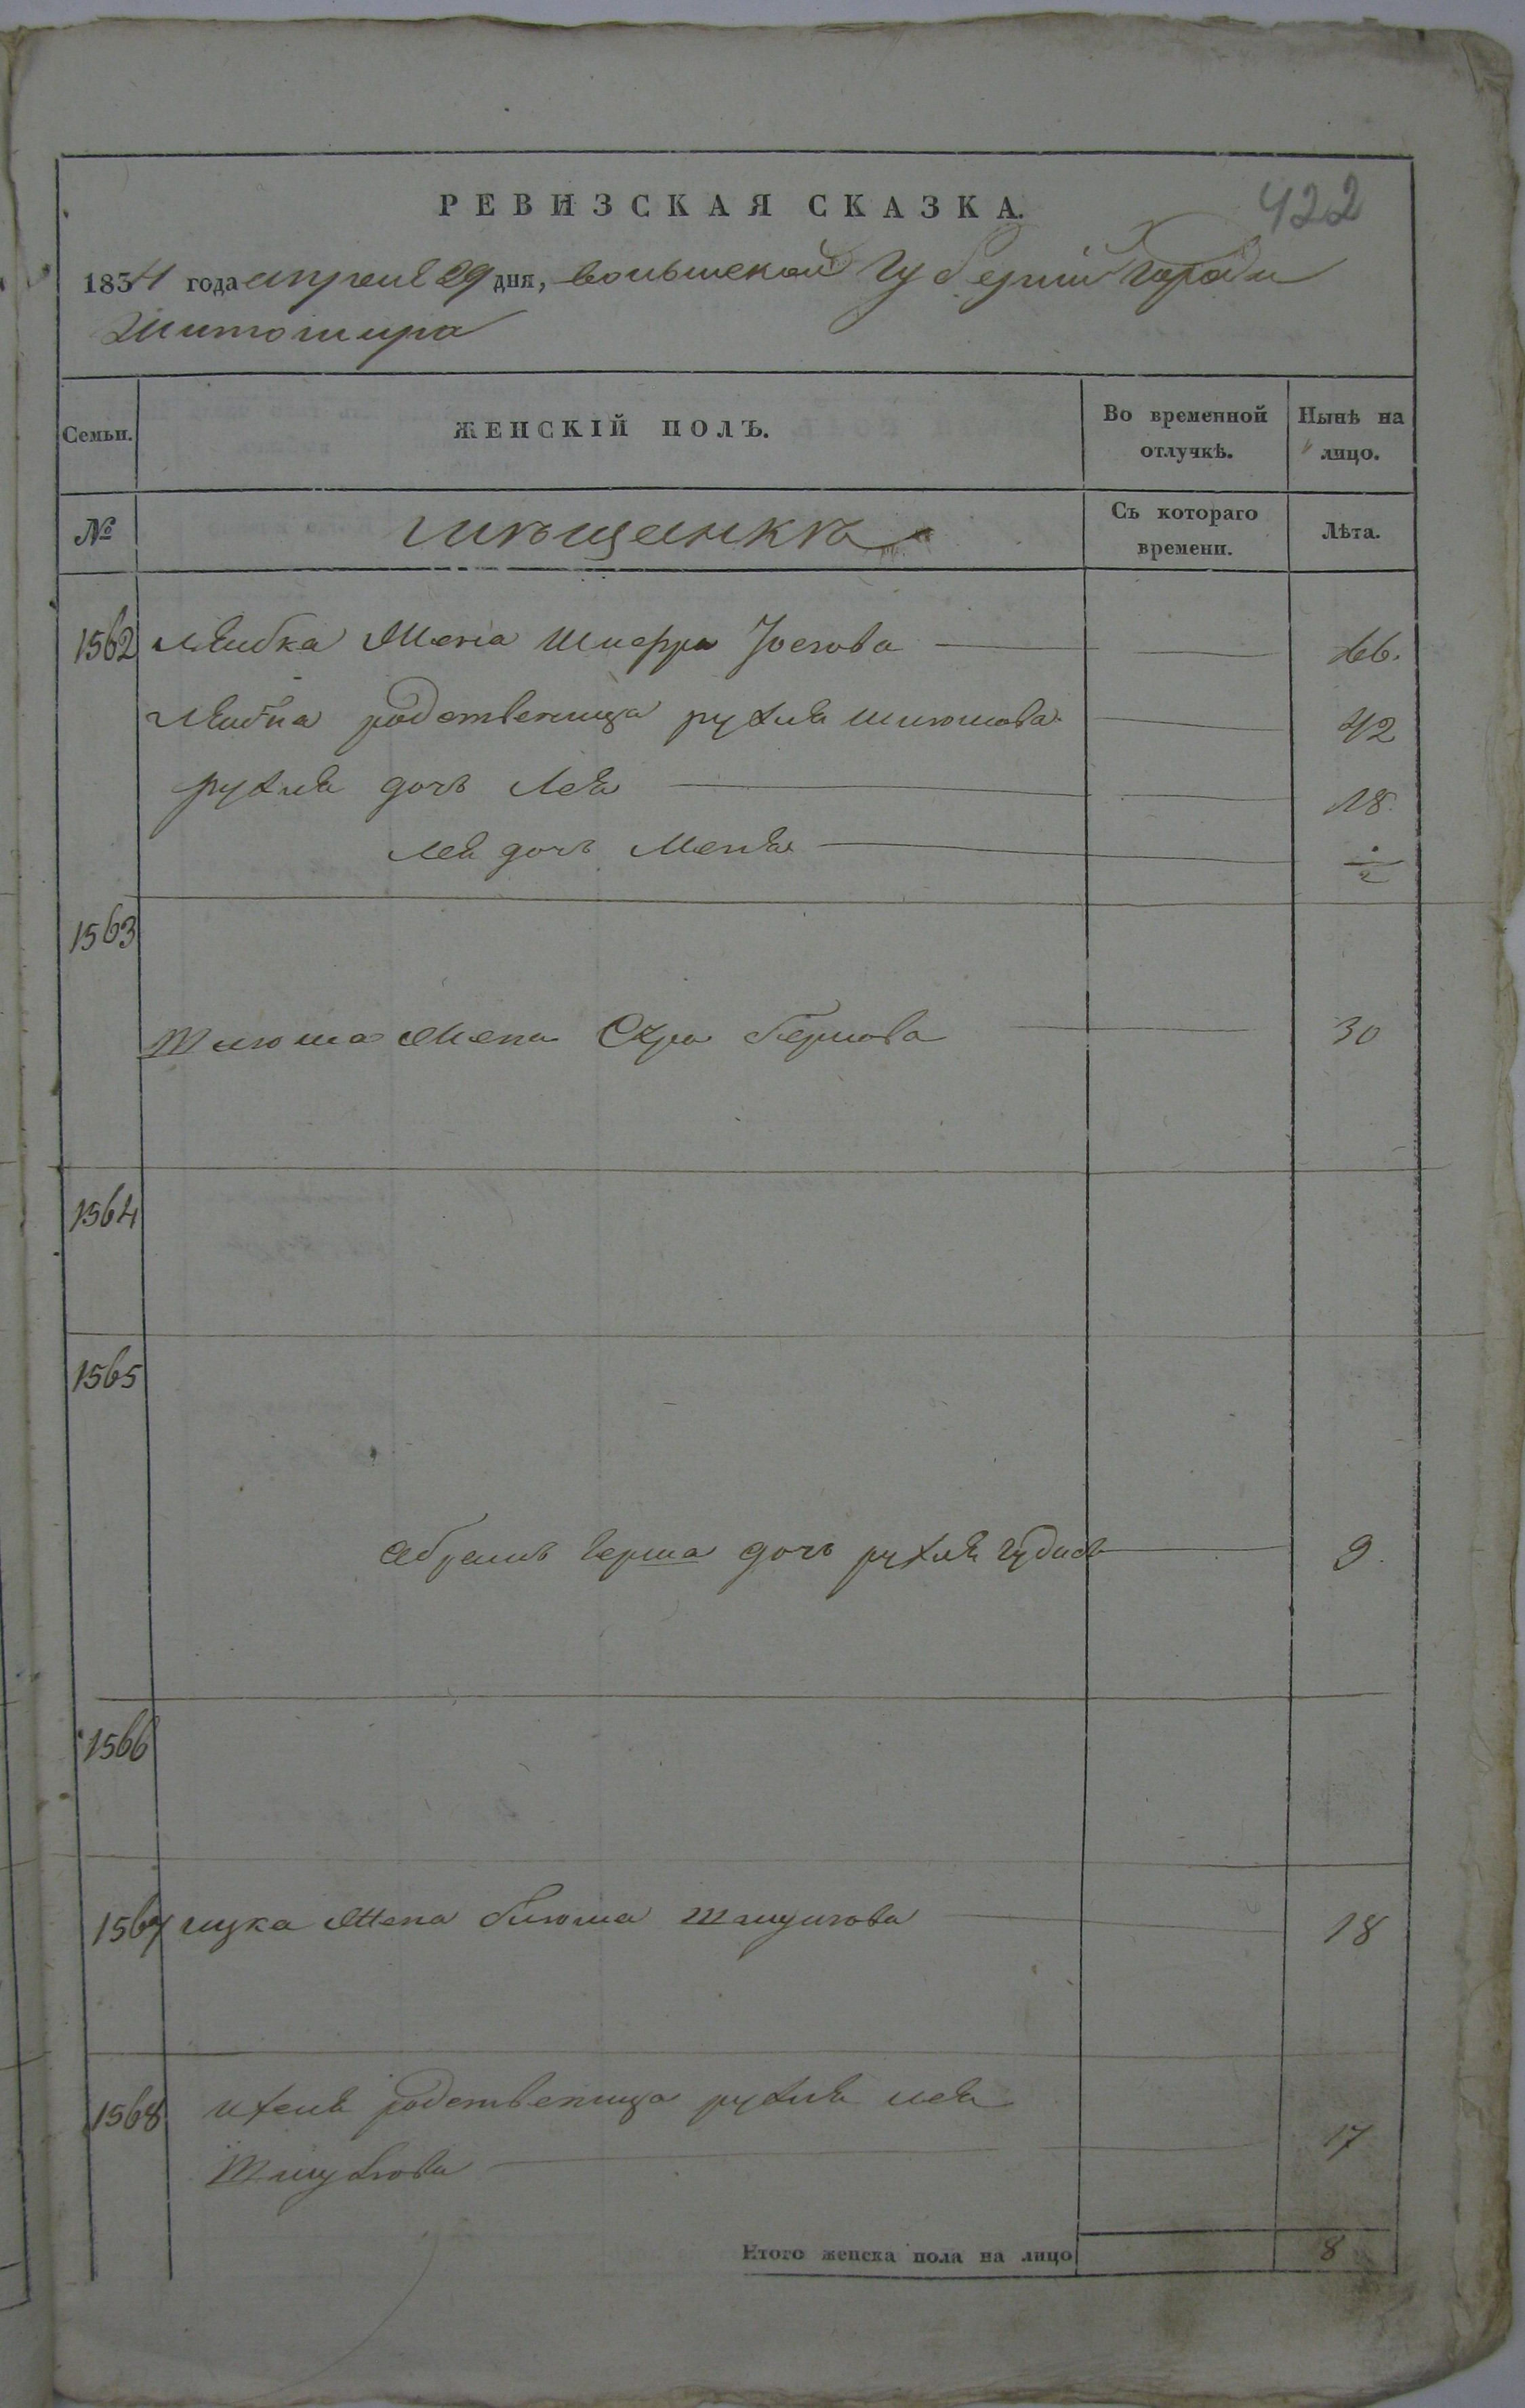 422
РЕВИЗСКАЯ СКАЗКА.
1834 года апреля 29 дня, волынской губернии города
Житомира
Семьи. ЖЕНСКІЙ ПОЛЪ. Во временной отлучкѣ. Нынѣ на лицо.
№ мѣщанкѣ Съ котораго времени. Лѣта.
1562 Лейбка жена Шифра Иосева 66.
Лейбка родственница рухля шлюмова 42
рухля дочь Лея 18.
Лея дочь Меня 1/2
1563
Шлюма жена Сура беркова 30
1564
1565
Абрамъ герша дочь рухля 9.
1566
1567 жена блюма 18
1568 родственница рухля лея
17
Итого женска пола на лицо 8